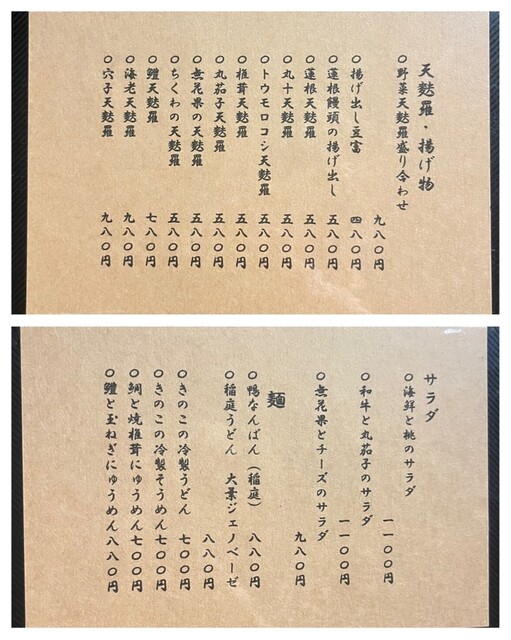 天麩羅・揚げ物
○野菜天麩羅盛り合わせ
九八〇円
○揚げ出し豆富
四八〇円
○蓮根饅頭の揚げ出し
五八〇円
○蓮根天麩羅
五八〇円
○丸十天麩羅
五八〇円
○トウモロコシ天麩羅
五八〇円
○椎茸天麩羅
五八〇円
○丸茄子天麩羅
五八〇円
○無花果の天麩羅
五八〇円
○ちくわの天麩羅
五八〇円
○鱧天麩羅
七八〇円
○海老天麩羅
九八〇円
○穴子天麩羅
九八〇円
サラダ
○海鮮と桃のサラダ
一一〇〇円
○和牛と丸茄子のサラダ
一一〇〇円
○無花果とチーズのサラダ
九八〇円
麺
○鴨なんばん（稲庭）
八八〇円
○稲庭うどん 大葉ジェノベーゼ
八八〇円
○きのこの冷製うどん
七〇〇円
○きのこの冷製そうめん
七〇〇円
○鯛と焼椎茸にゅうめん
七〇〇円
○鱧と玉ねぎにゅうめん
八八〇円